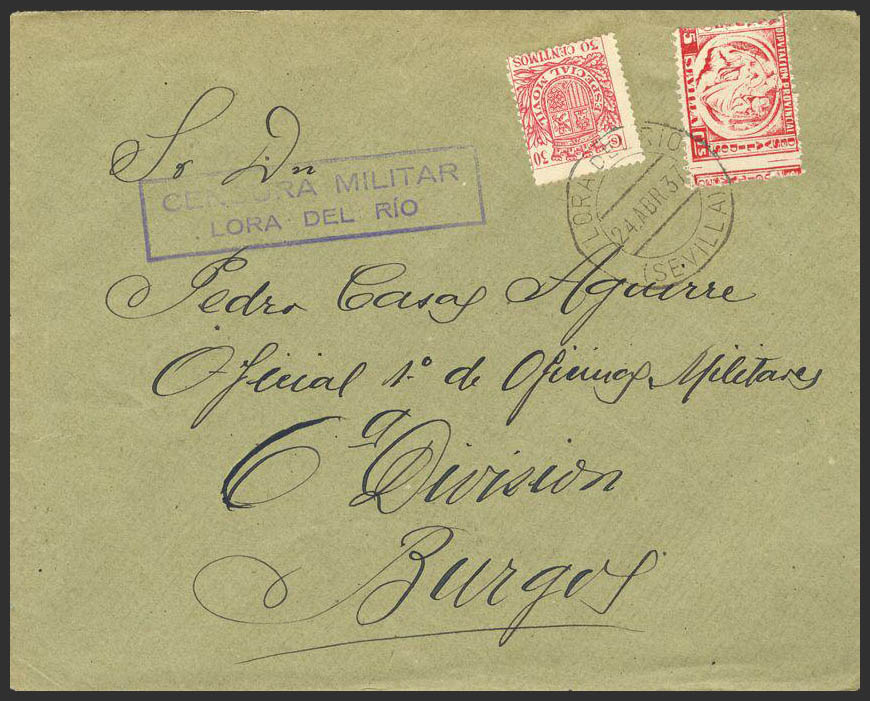 ESPECIAL MOVIL
30 CENTIMOS
30
DIPUTACION PROVINCIAL
5 SEVILLA
LORA DEL RIO
24.ABR.3
(SEVILLA)
Sr Dn
CENSURA MILITAR
LORA DEL RÍO
Pedro Casas Aguirre
Oficial 1º de Oficinas Militares
6ª Division
Burgos